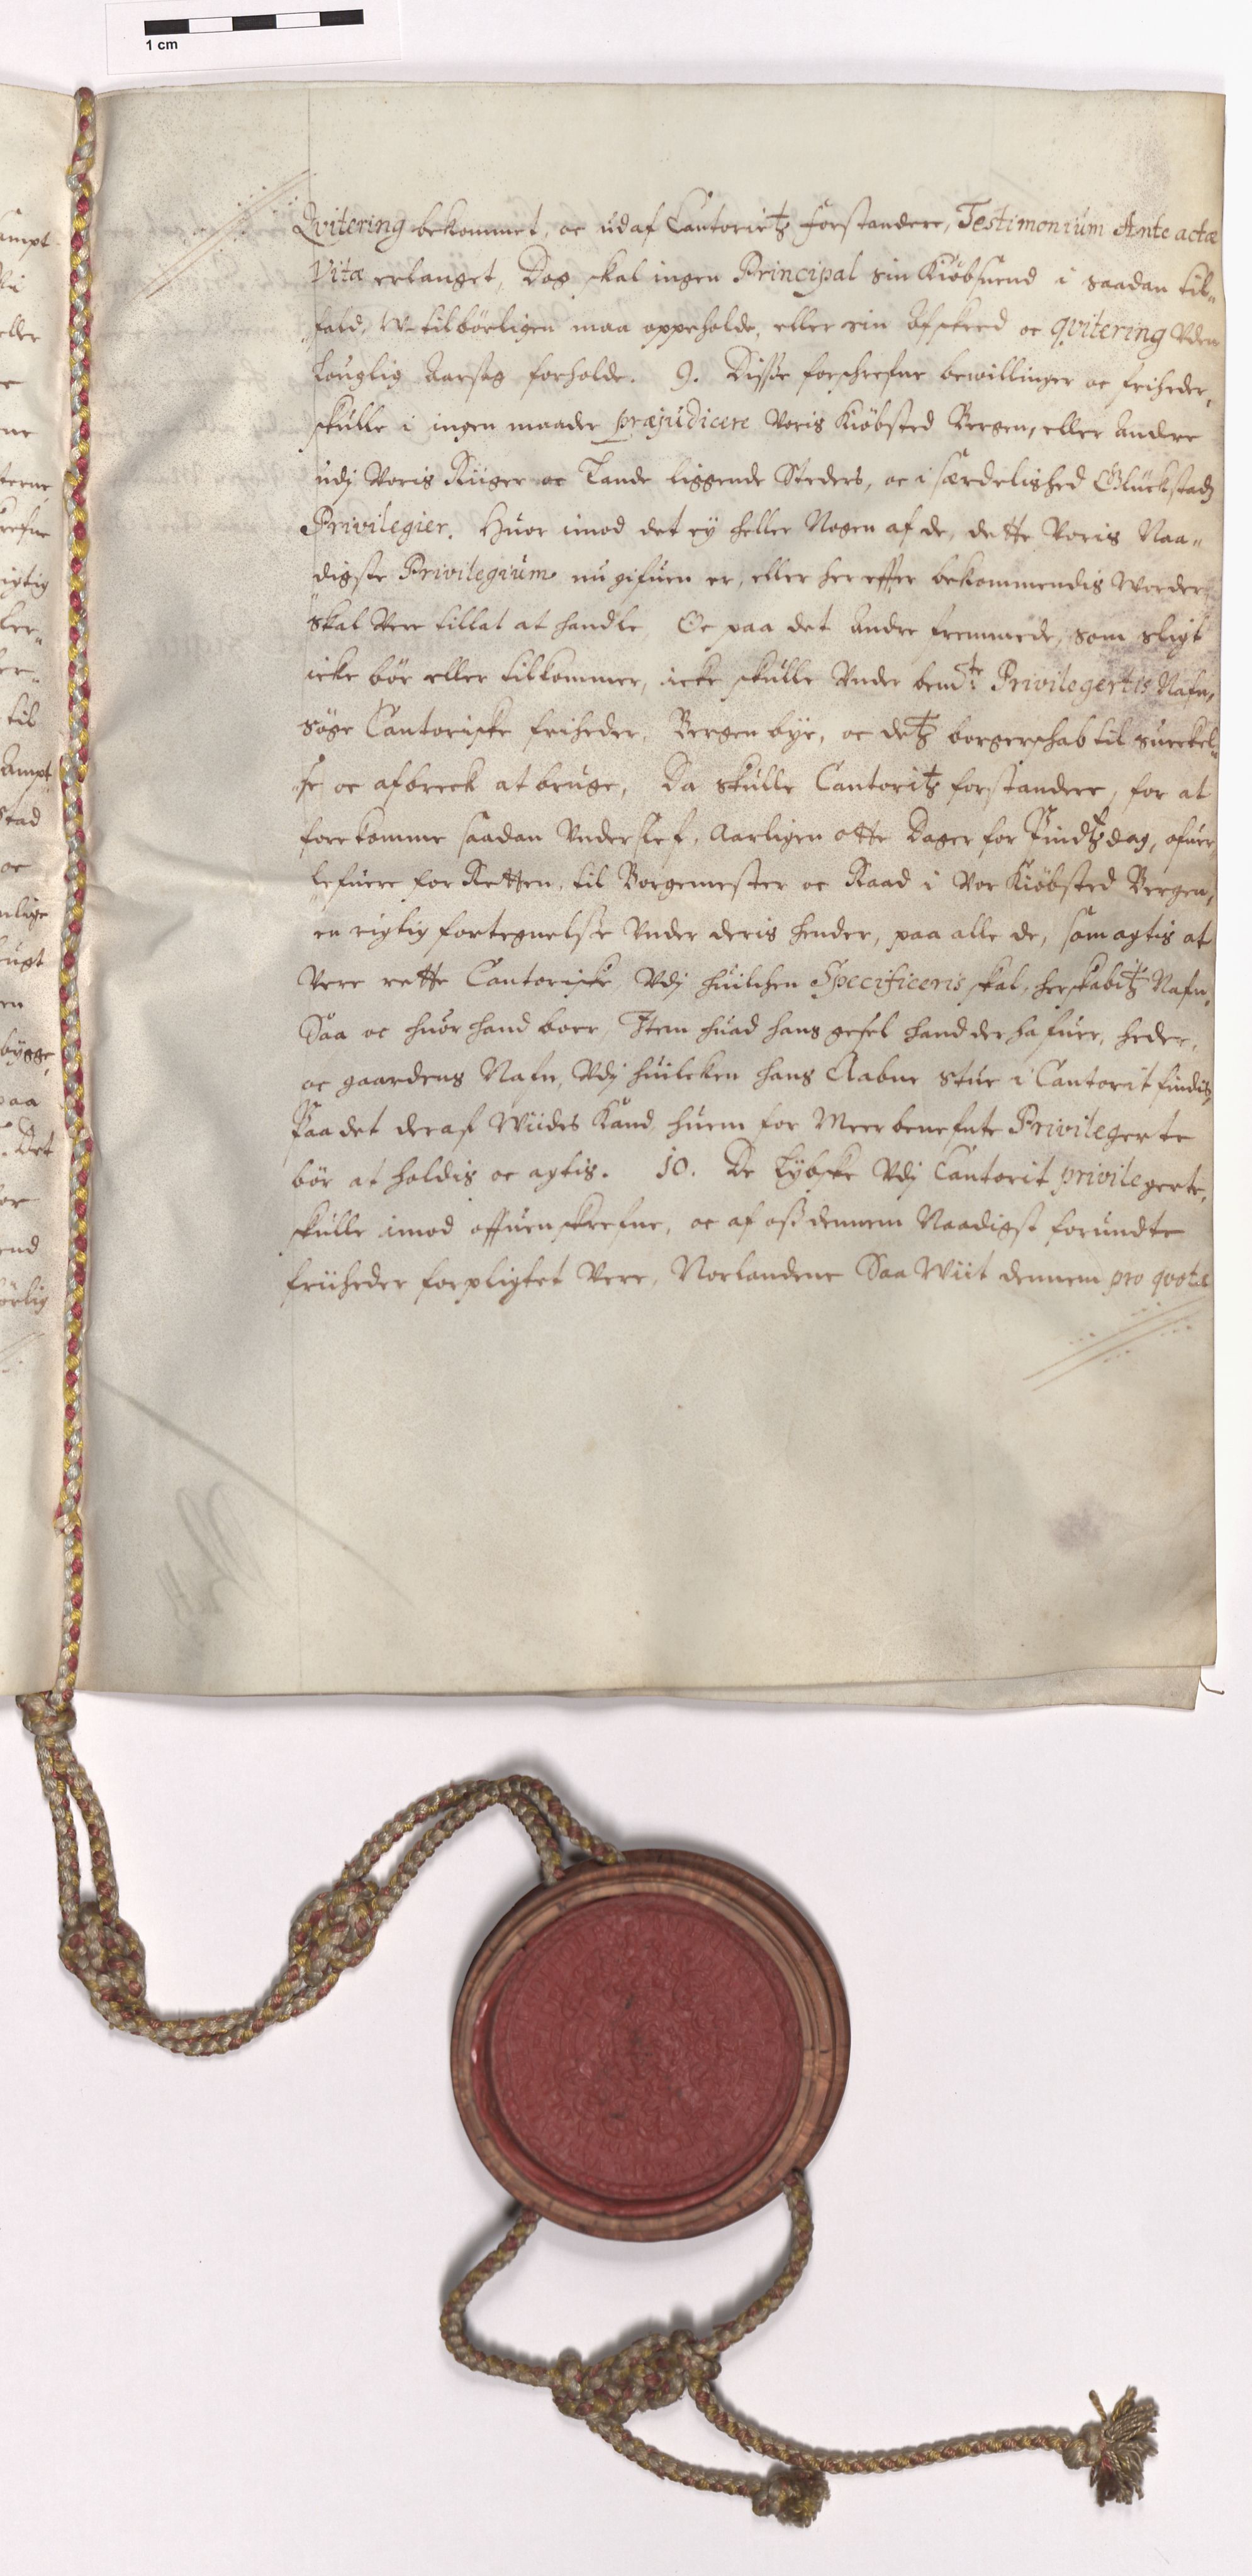 1 cm
Qvitering bekommet, oc udaf Cantoritz forstandere, Testimonium Ante actæ
Vitæ erlanget, Dog skal ingen Principal sin Kiöbsuend i saadan til„
„fald, W-tilbörligen maa oppeholde, eller sin Afskeed oc qvitering Vden
Louglig Aarsag forholde. 9. Disse forschrefne bewillinger oc friheder,
skulle i ingen maader præjudicere Voris Kiöbsted Bergen, eller Andre
udj Voris Riiger oc Lande liggende Steders, oc i særdelished Glückstadz
Privilegier. Huor imod det ey heller Nogen af de, dette Voris Naa„
digste Privilegium nu gifuen er, eller her effter bekommendis Worder
skal Vere tillat at handle, Oc paa det Andre fremmede, som sligt
icke bör eller tilkommer, icke skulle Vnder bemte: Privilegertis Nafn,
söge Cantoriske friheder, Bergen bye, oc detz borgerschab til sueckel„
„se oc afbreck at bruge, Da skulle Cantoritz forstandere, for at
forekomme saadan Vnderslef, Aarligen otte Dager for Pindtzdag, ofuer
lefuere for Retten, til Borgemester oc Raad i Vor Kiöbsted Bergen,
en rigtig fortegnelse Vnder deris hender, paa alle de, som agtis at
Vere rette Cantoriske, Vdj huilchen Specificeris skal, herskabitz Nafn,
Saa oc huor hand boer, Item huad hans gesel hand der hafuer, heder,
oc gaardens Nafn, Vdj huilcken hans Aabne stue i Cantorit findis,
Paa det deraf Wiides Kand huem for Meerbenefnte Privilegerte
bör at holdis oc agtis. 10. De Lybske Vdj Cantorit privilegerte,
skulle imod offuenskrefne, oc af oss dennem Naadigst forundte
friiheder forpligtet Vere, Norlandene Saa Wiit dennem pro quota